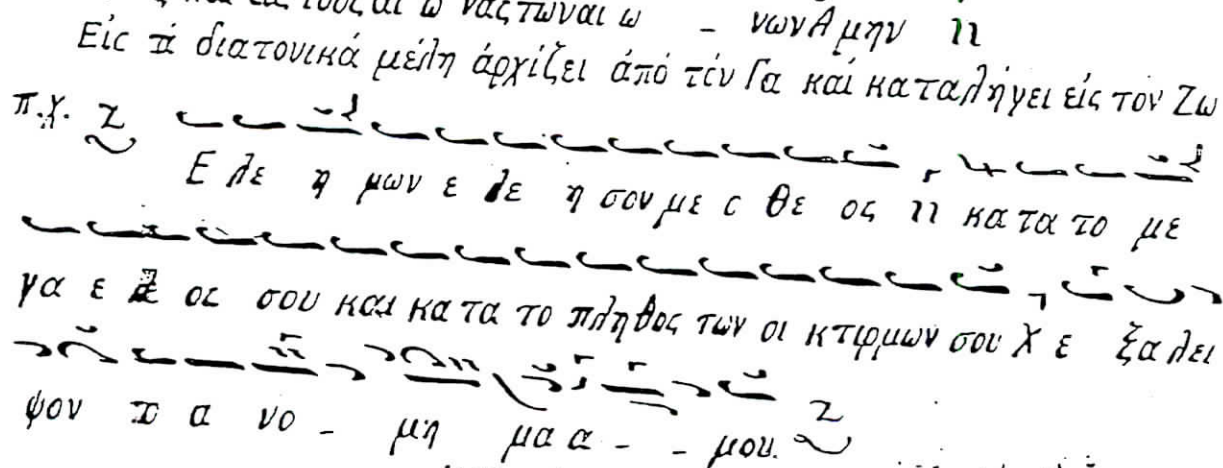 και εις τους αι ω νας των αι ω - νων Α μην
Είς τά διατονικά μέλη άρχίζει άπό τόν Γα καί καταλήγει είς τόν Ζω
π.χ. Ζ
Ε λε η μων ε λε η σον με ο θε ος κα τα το με
γα ε λε ος σου και κα τα το πληθος των οι κτιρμων σου Χ ε ξα λει
ψον το α νο - μη μα α - - μου. Ζ